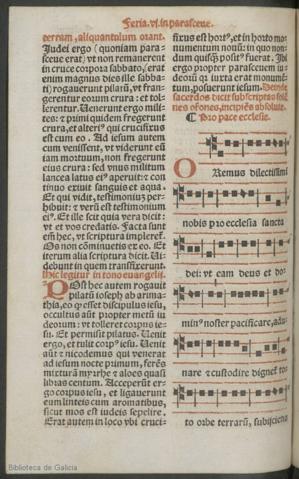 Feria.vj.in parasceue.
terram, aliquantulum orant.
Judei ergo (quoniam para-
sceue erat) vt non remanerent
in cruce corpora sabbato, (erat
enim magnus dies ille sabba-
ti) rogauerunt pilatū, vt fran-
gerentur eorum crura: et tol-
lerentur. Uenerunt ergo mili-
tes: et primi quidem fregerunt
crura, et alteriꝰ qui crucifixus
est cum eo. Ad iesum autem
cum venissent, vt viderunt eū
iam mortuum, non fregerunt
eius crura: sed vnus militum
lancea latus eiꝰ aperuit: et con
tinuo exiuit sanguis et aqua.
Et qui vidit, testimoniū per-
hibuit: et verū est testimonium
eiꝰ. Et ille scit quia vera dicit:
vt et vos credatis. Facta sunt
em̄ hec, vt scriptura impleret̄.
Os non cōminuetis ex eo. Et
iterum alia scriptura dicit. Ui-
debunt in quem transfixerunt.
Hic legitur in tono euangelij.
Post hec autem rogauit
pilatū ioseph ab arima-
thia, eo ꝙ esset discipulus iesu,
occultus aūt propter metū iu
deorum: vt tolleret corpus ie-
su. Et permisit pilatus. Uenit
ergo, et tulit corpꝰ iesu. Uenit
aūt et nicodemus qui venerat
ad iesum nocte primum, ferēs
mixturā myrrhe et aloes quasi
libras centum. Acceperūt er-
go corpus iesu, et ligauerunt
eum linteis cum aromatibus,
sicut mos est iudeis sepelire.
Erat autem in loco vbi cruci-
fixus est hortꝰ, et in horto mo-
numentum nouū: in quo non-
dum quisꝙ positꝰ fuerat. Ibi
ergo propter parasceuem iu-
deorū qꝫ iuxta erat monumē-
tum, posuerunt iesum. Deinde
sacerdos dicit subscriptas
ones, incipiēs absolute.
¶ Pro pace ecclesie.
ORemus dilectissimi
nobis pro ecclesia sancta
dei: vt eam deus et do-
minꝰ noster pacificare, adu-
nare et custodire dignet̄ to-
to orbe terrarū, subijciens
Biblioteca de Galicia